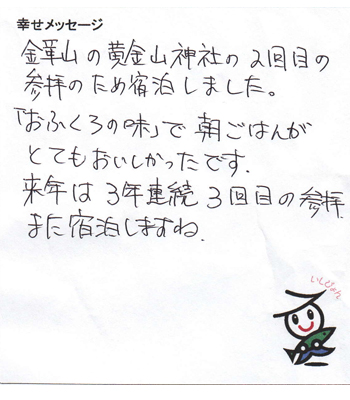 幸せメッセージ
金華山の黄金山神社の2回目の
参拝のため宿泊しました。
「おふくろの味」で朝ごはんが
とてもおいしかったです.
来年は3年連続3回目の参拝
また宿泊しますね.
いしぴょん